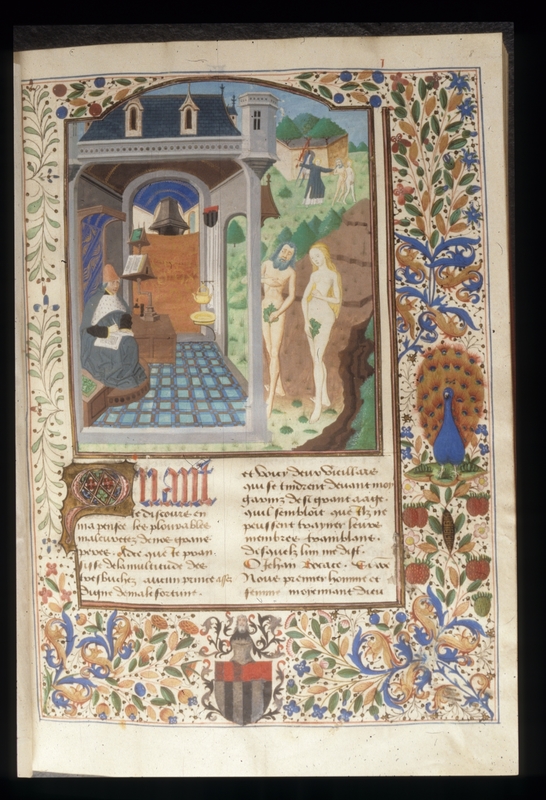 Quant
ie discours en
ma pensee les plourables
maleuretez de nos grans
peres. Adce que ie proan
sisse dela multitude des
tresbuchez aucun prince assez
digne de male fortune.
et voicy deux vieillars
qui se tindrent devant moy
garniz de si grant aage
quil sembloit que ilz ne
peussent trayner leurs
membres tremblans.
disquelz lun me dist.
O Jehan Bocace.
Nous premier homme et
femme moyennant dieu